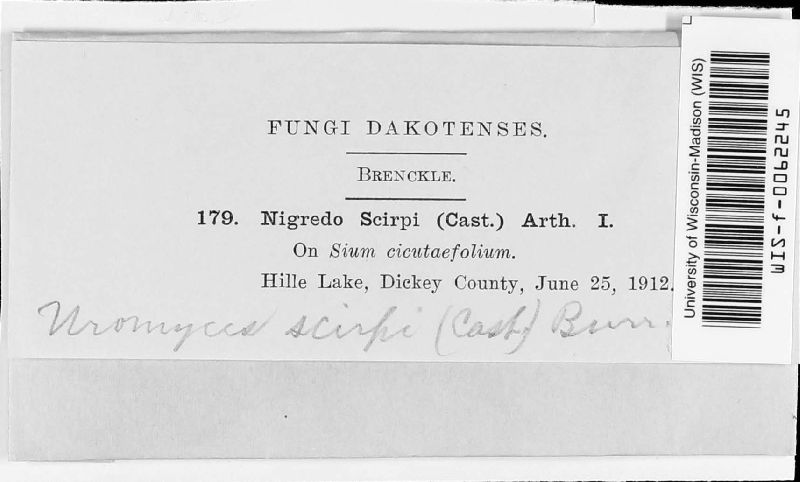 FUNGI DAKOTENSES.
BRENCKLE.
179. Nigredo Scirpi (Cast.) Arth. I.
On Sium cicutaefolium.
Hille Lake, Dickey County, June 25, 1912.
Uromyces scirpi (Cast.) Burr.
University of Wisconsin-Madison (WIS)
WIS-f-0062245